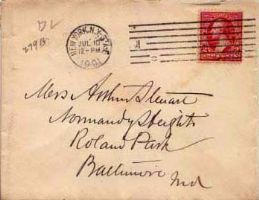 D L
279B
NEW YORK, N.Y.
JUL 10
12-PM
1901
Mrs Arthur Stewart
Normandy Heights
Roland Park
Baltimore
Md